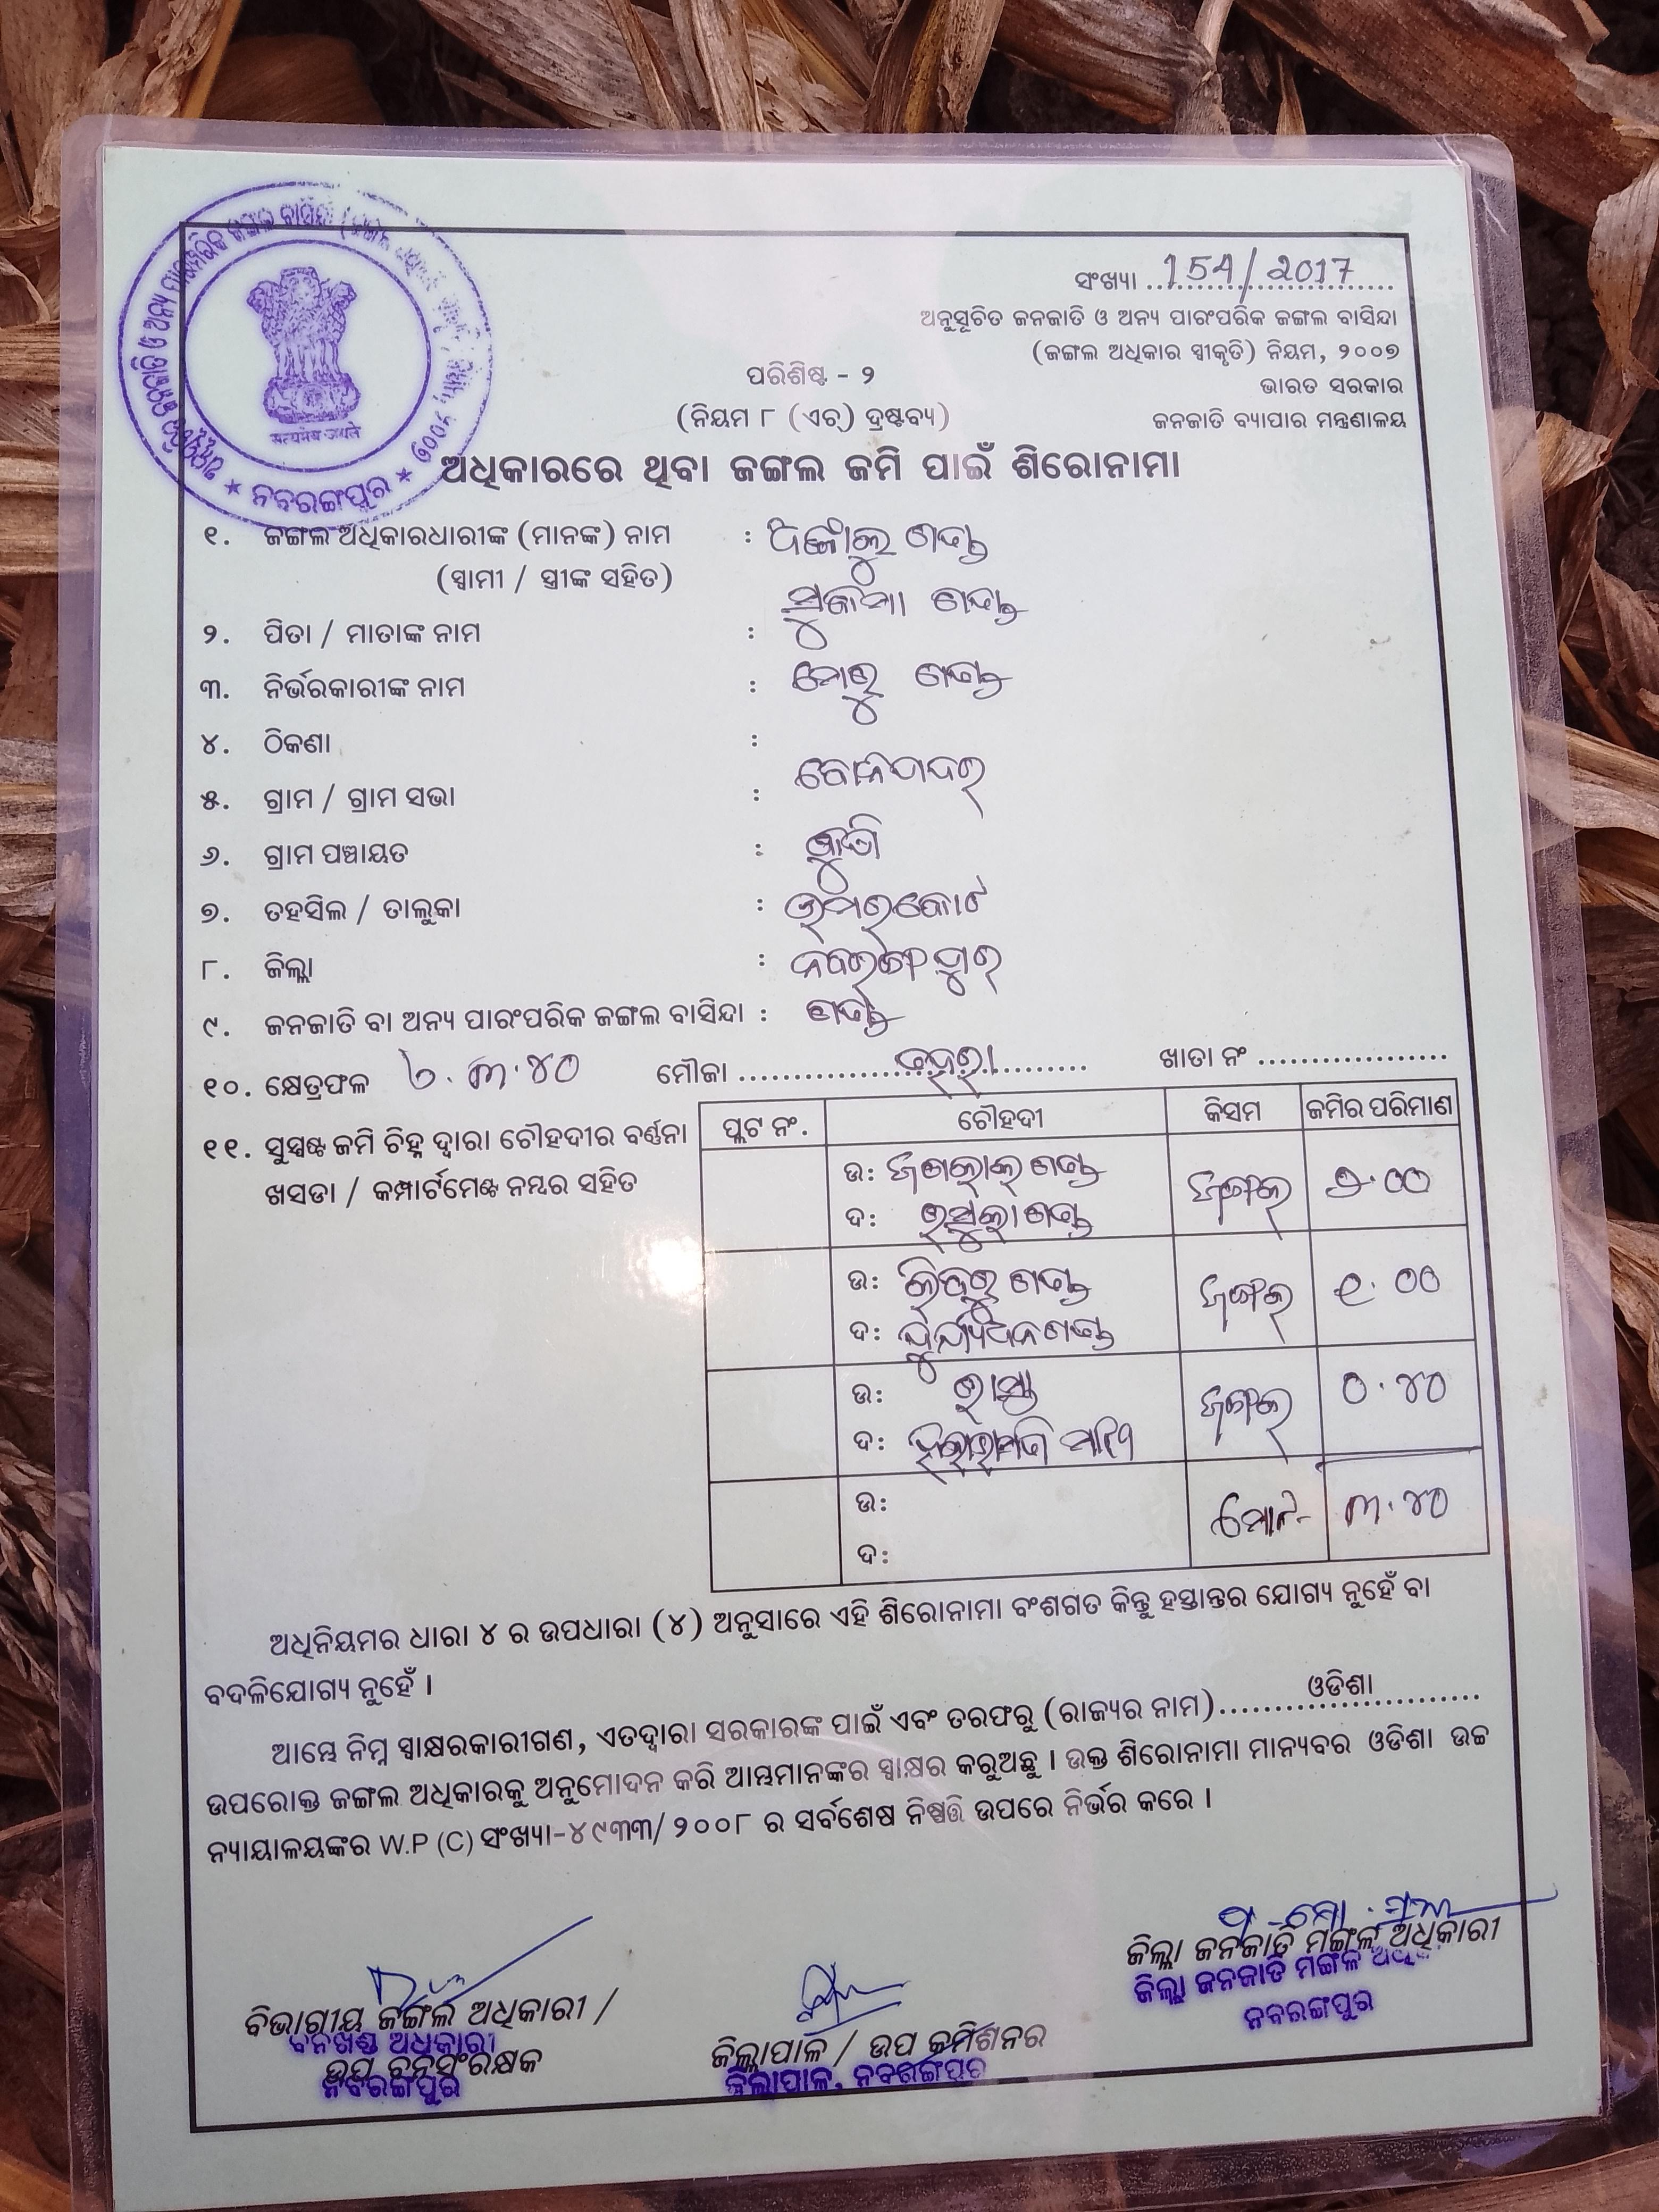 ସଂଖ୍ୟା 154/2017
ଅନୁସୂଚିତ ଜନଜାତି ଓ ଅନ୍ୟ ପାରଂପରିକ ଜଙ୍ଗଲ ବାସିନ୍ଦା
(ଜଙ୍ଗଲ ଅଧିକାର ସ୍ୱୀକୃତି) ନିୟମ, ୨୦୦୭
ଭାରତ ସରକାର
ଜନଜାତି ବ୍ୟାପାର ମନ୍ତ୍ରଣାଳୟ
सत्यमेव जयते
★ ନବରଙ୍ଗପୁର ★
ପରିଶିଷ୍ଟ - ୨
(ନିୟମ ୮ (ଏଚ୍) ଦ୍ରଷ୍ଟବ୍ୟ)
ଅଧିକାରରେ ଥିବା ଜଙ୍ଗଲ ଜମି ପାଇଁ ଶିରୋନାମା
୧. ଜଙ୍ଗଲ ଅଧିକାରଧାରୀଙ୍କ (ମାନଙ୍କ) ନାମ : ଗଣ୍ଡ
(ସ୍ୱାମୀ / ସ୍ତ୍ରୀଙ୍କ ସହିତ) ଗଣ୍ଡ
୨. ପିତା / ମାତାଙ୍କ ନାମ :
୩. ନିର୍ଭରକାରୀଙ୍କ ନାମ : ଗଣ୍ଡ
୪. ଠିକଣା :
୫. ଗ୍ରାମ / ଗ୍ରାମ ସଭା :
୬. ଗ୍ରାମ ପଞ୍ଚାୟତ :
୭. ତହସିଲ / ତାଲୁକା : ଉମରକୋଟ
୮. ଜିଲ୍ଲା : ନବରଙ୍ଗପୁର
୯. ଜନଜାତି ବା ଅନ୍ୟ ପାରଂପରିକ ଜଙ୍ଗଲ ବାସିନ୍ଦା : ଗଣ୍ଡ
୧୦. କ୍ଷେତ୍ରଫଳ ୩.୪୦ ମୌଜା ଖାତା ନଂ
୧୧. ସୁସ୍ପଷ୍ଟ ଜମି ଚିହ୍ନ ଦ୍ୱାରା ଚୌହଦୀର ବର୍ଣ୍ଣନା
ଖସଡା / କମ୍ପାର୍ଟମେଣ୍ଟ ନମ୍ବର ସହିତ
ପ୍ଲଟ ନଂ. ଚୌହଦୀ କିସମ ଜମିର ପରିମାଣ
ଉ: ଗଣ୍ଡ ଜଙ୍ଗଲ ୨.୦୦
ଦ: ଗଣ୍ଡ
ଉ: ଗଣ୍ଡ ଜଙ୍ଗଲ ୧.୦୦
ଦ: ଗଣ୍ଡ
ଉ: ରାସ୍ତା ଜଙ୍ଗଲ ୦.୪୦
ଦ:
ଉ: ମୋଟ- ୩.୪୦
ଦ:
ଅଧିନିୟମର ଧାରା ୪ ର ଉପଧାରା (୪) ଅନୁସାରେ ଏହି ଶିରୋନାମା ବଂଶଗତ କିନ୍ତୁ ହସ୍ତାନ୍ତର ଯୋଗ୍ୟ ନୁହେଁ ବା
ବଦଳିଯୋଗ୍ୟ ନୁହେଁ ।
ଆମ୍ଭେ ନିମ୍ନ ସ୍ୱାକ୍ଷରକାରୀଗଣ, ଏତଦ୍ୱାରା ସରକାରଙ୍କ ପାଇଁ ଏବଂ ତରଫରୁ (ରାଜ୍ୟର ନାମ) ଓଡିଶା
ଉପରୋକ୍ତ ଜଙ୍ଗଲ ଅଧିକାରକୁ ଅନୁମୋଦନ କରି ଆମ୍ଭମାନଙ୍କର ସ୍ୱାକ୍ଷର କରୁଅଛୁ । ଉକ୍ତ ଶିରୋନାମା ମାନ୍ୟବର ଓଡିଶା ଉଚ୍ଚ
ନ୍ୟାୟାଳୟଙ୍କର W.P (C) ସଂଖ୍ୟା-୪୯୩୩/୨୦୦୮ ର ସର୍ବଶେଷ ନିଷ୍ପତ୍ତି ଉପରେ ନିର୍ଭର କରେ ।
ବିଭାଗୀୟ ଜଙ୍ଗଲ ଅଧିକାରୀ /
ବନଖଣ୍ଡ ଅଧିକାରୀ
ଉପ ବନସଂରକ୍ଷକ
ନବରଙ୍ଗପୁର
ଜିଲ୍ଲାପାଳ / ଉପ କମିଶନର
ଜିଲ୍ଲାପାଳ, ନବରଙ୍ଗପୁର
ଜିଲ୍ଲା ଜନଜାତି ମଙ୍ଗଳ ଅଧିକାରୀ
ଜିଲ୍ଲା ଜନଜାତି ମଙ୍ଗଳ ଅଧିକାରୀ
ନବରଙ୍ଗପୁର